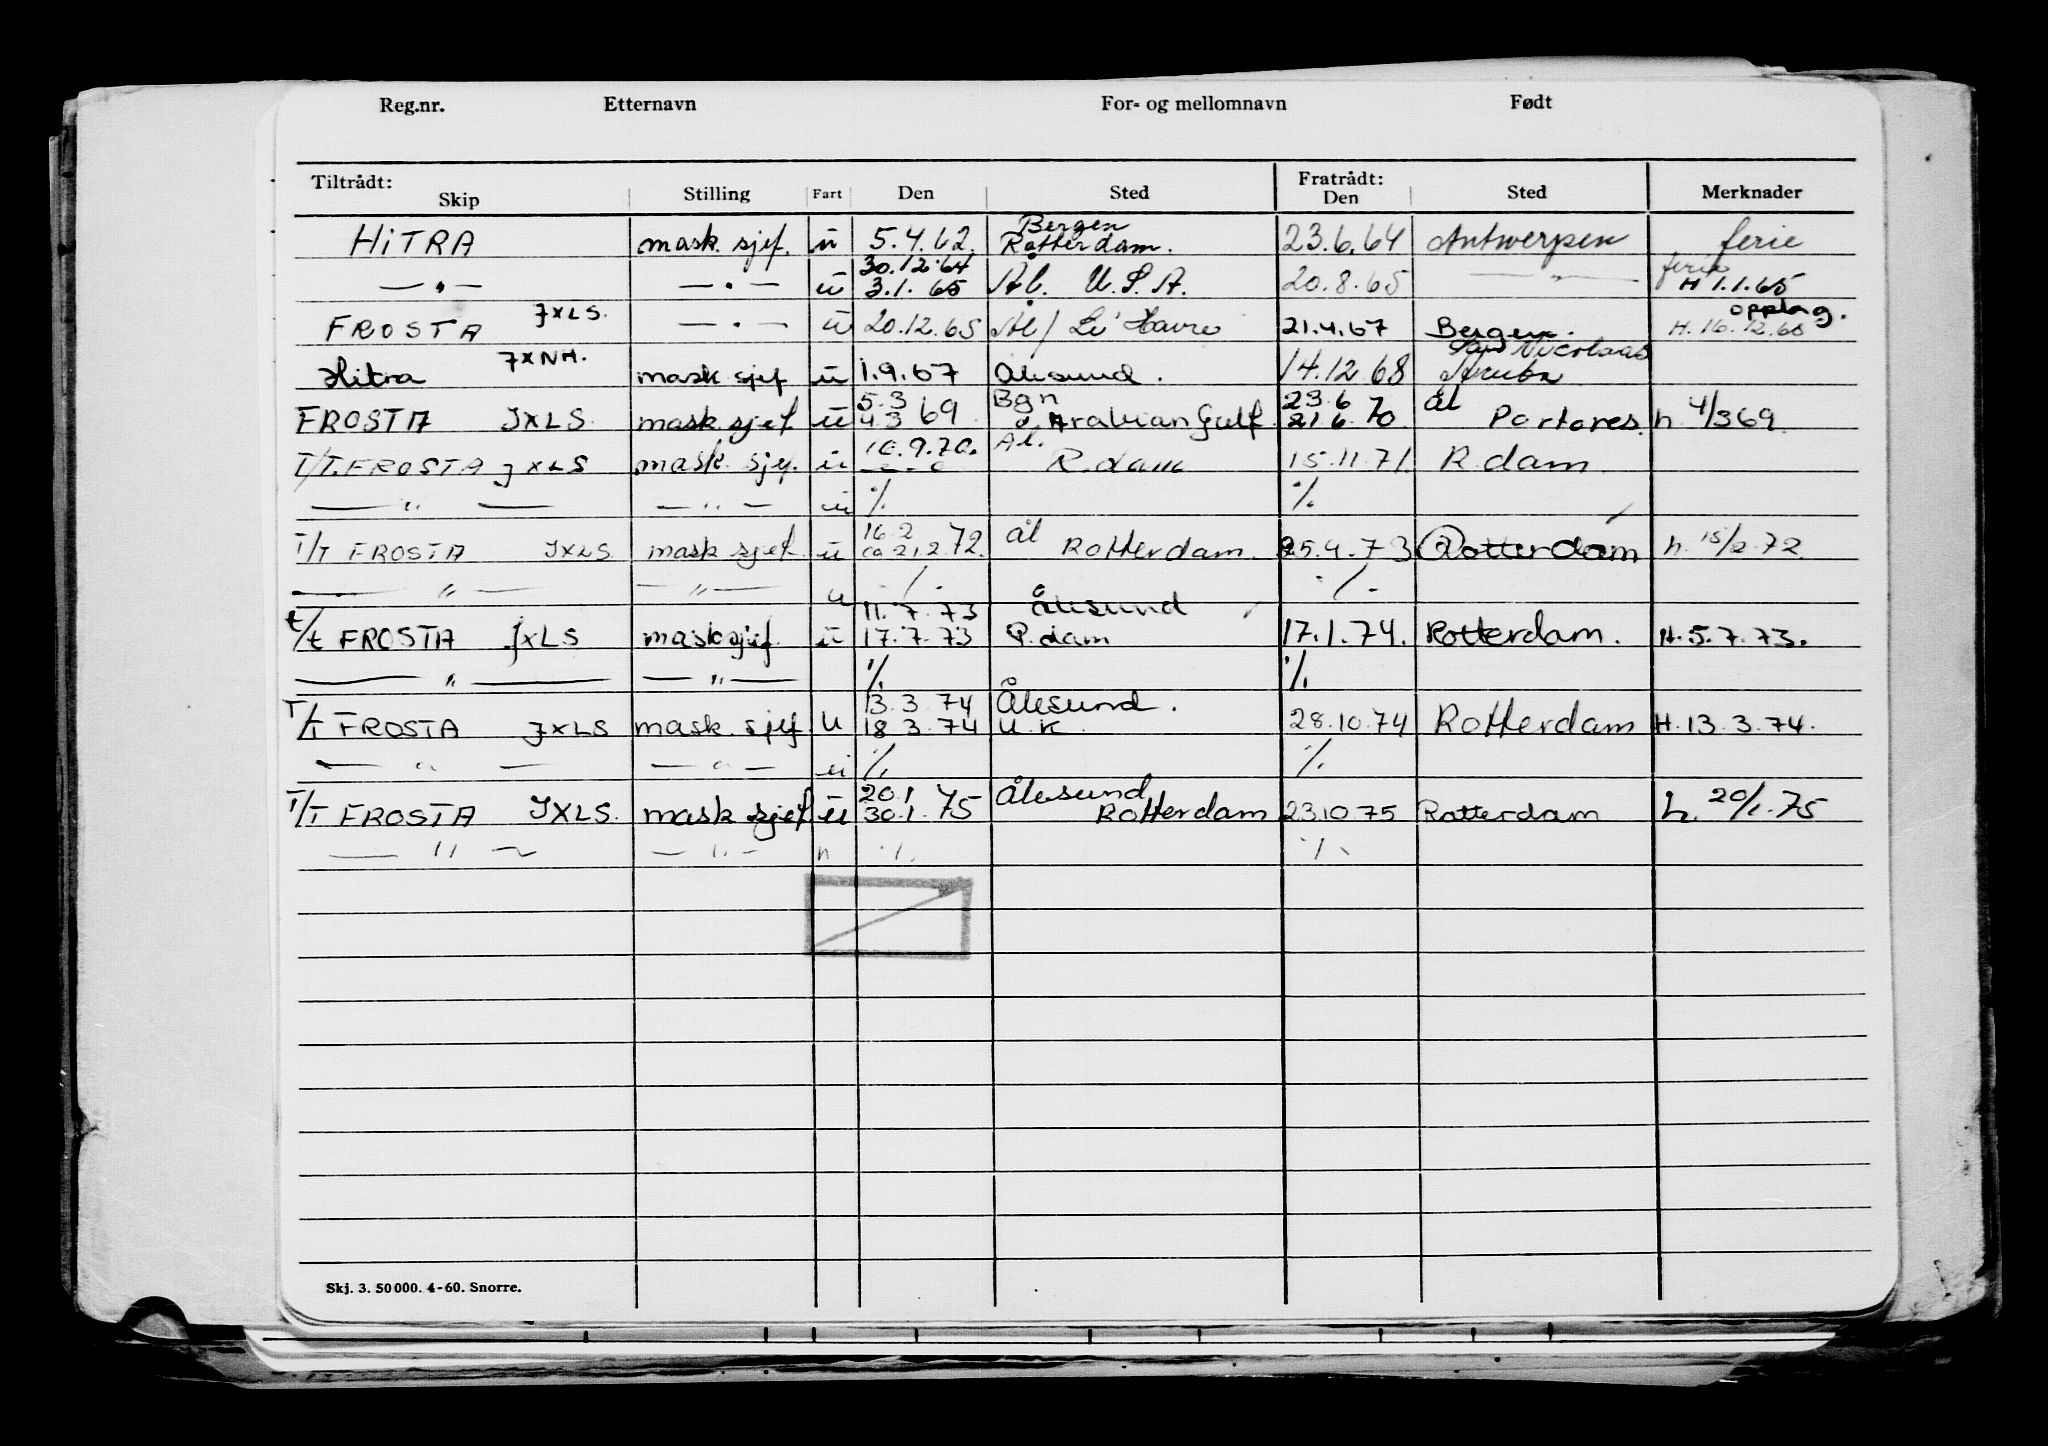 Reg.nr. Etternavn For- og mellomnavn Født
Tiltrådt: Fratrådt:
Skip Stilling Fart Den Sted Den Sted Merknader
Bergen
HiTRA mask. sjef. u 5.4.62. Rotterdam. 23.6.64 Antwerpen ferie
30.12.64 ferie
— " — — " — u 3.1.65 Ål. U.S.A. 20.8.65 — " — H 1.1.65
opplag.
FROSTA JXLS. — " — u 20.12.65 Ål/ Le Havre 21.4.67 Bergen. H. 16.12.65
San Nicolaas
Hitra JXNH. mask sjef u 1.9.67 Ålesund. 14.12.68 Aruba
5.3 Bgn 23.6 ål
FROSTA JXLS. mask sjef u 4.3 69 Arabian Gulf. 21.6 70 Portores. h. 4/3 69.
10.9.70. Ål.
T/T. FROSTA JXLS mask. sjef. u — " — R.dam 15.11.71. R.dam.
— " — — " — u ./. ./.
16.2 ål
T/T FROSTA JXLS mask sjef u ca 21.2 72. Rotterdam. 25.4.73 Rotterdam h. 15/2.72.
— " — — " — u ./. ./.
11.7.73 Ålesund
t/t FROSTA JXLS mask sjef. u 17.7.73 R.dam 17.1.74. Rotterdam. H. 5.7.73.
— " — — " — ./. ./.
13.3.74 Ålesund.
T/T FROSTA JXLS mask. sjef u 18.3.74 U.K. 28.10.74 Rotterdam H. 13.3.74.
— " — — " — u ./. ./.
20.1 Ålesund
T/T FROSTA JXLS. mask sjef u 30.1. 75 Rotterdam 23.10.75 Rotterdam h. 20/1.75
— " — — " — " ./. ./.
Skj. 3. 50 000. 4-60. Snorre.